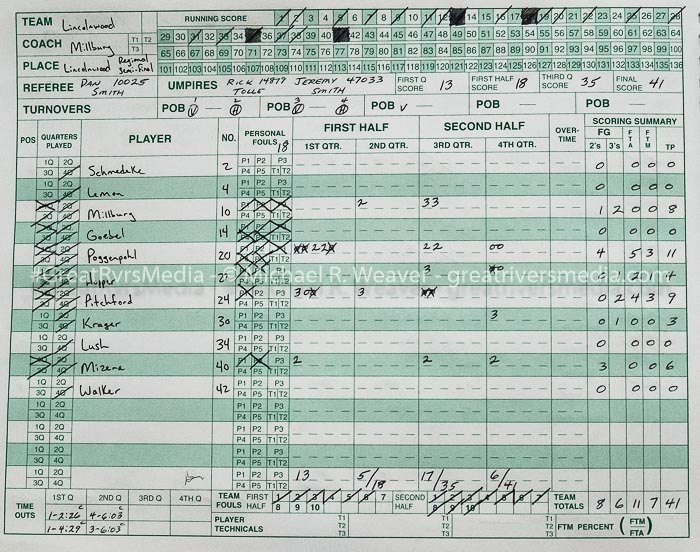 TEAM Lincolnwood RUNNING SCORE 1 2 3 4 5 6 7 8 9 10 11 12 14 15 16 17 19 20 21 22 23 24 25 26 27 28
COACH Millburg T1 T2 T3 29 30 31 32 33 34 36 37 38 39 40 42 43 44 45 46 47 48 49 50 51 52 53 54 55 56 57 58 59 60 61 62 63 64
65 66 67 68 69 70 71 72 73 74 75 76 77 78 79 80 81 82 83 84 85 86 87 88 89 90 91 92 93 94 95 96 97 98 99 100
PLACE Lincolnwood Regional Semi-Final 101 102 103 104 105 106 107 108 109 110 111 112 113 114 115 116 117 118 119 120 121 122 123 124 125 126 127 128 129 130 131 132 133 134 135 136
REFEREE Dan Smith 10025 UMPIRES Rick Tolle 14877 Jeremy Smith 47033 FIRST Q SCORE 13 FIRST HALF SCORE 18 THIRD Q SCORE 35 FINAL SCORE 41
TURNOVERS POB 1 V — 2 H POB 3 V — 4 H POB V — POB — POB —
POS QUARTERS PLAYED PLAYER NO. PERSONAL FOULS 18 FIRST HALF 1ST QTR. 2ND QTR. SECOND HALF 3RD QTR. 4TH QTR. OVER-TIME SCORING SUMMARY FG 2's 3's FTA FTM TP
1Q 2Q 3Q 4Q Schmedeke 2 P1 P2 P3 P4 P5 T1 T2 0 0 0 0
1Q 2Q 3Q 4Q Lemon 4 P1 P2 P3 P4 P5 T1 T2 0 0 0 0
Millburg 10 2 33 1 2 0 0 8
Goebel 14 0 0 0 0
Poggenpohl 20 22 22 00 4 5 3 11
Hopper 3 0 2 1 4
Pitchford 24 30 3 0 2 4 3 9
Krager 30 P1 P2 P3 P4 P5 T1 T2 3 0 1 0 0 3
Lush 34 P1 P2 P3 P4 P5 T1 T2 0 0 0 0
Mizera 40 2 2 2 3 0 0 6
1Q 2Q 3Q 4Q Walker 42 P1 P2 P3 P4 P5 T1 T2 0 0 0 0
1Q 2Q 3Q 4Q P1 P2 P3 P4 P5 T1 T2
1Q 2Q 3Q 4Q P1 P2 P3 P4 P5 T1 T2
1Q 2Q 3Q 4Q P1 P2 P3 P4 P5 T1 T2
1Q 2Q 3Q 4Q P1 P2 P3 P4 P5 T1 T2
1Q 2Q 3Q 4Q P1 P2 P3 P4 P5 T1 T2 13 5/18 17/35 6/41
#GreatRvrsMedia - © Michael R. Weaver - greatriversmedia.com
TIME OUTS 1ST Q 2ND Q 3RD Q 4TH Q TEAM FOULS FIRST HALF 1 2 3 4 5 6 7 8 9 10 SECOND HALF 1 2 3 4 5 6 7 8 9 10 TEAM TOTALS 8 6 11 7 41
1-2:26 c 4-6:03 c
1-4:29 c 3-6:03 c
PLAYER TECHNICALS T1 T2 T3 T1 T2 T3 FTM PERCENT (FTM/FTA)